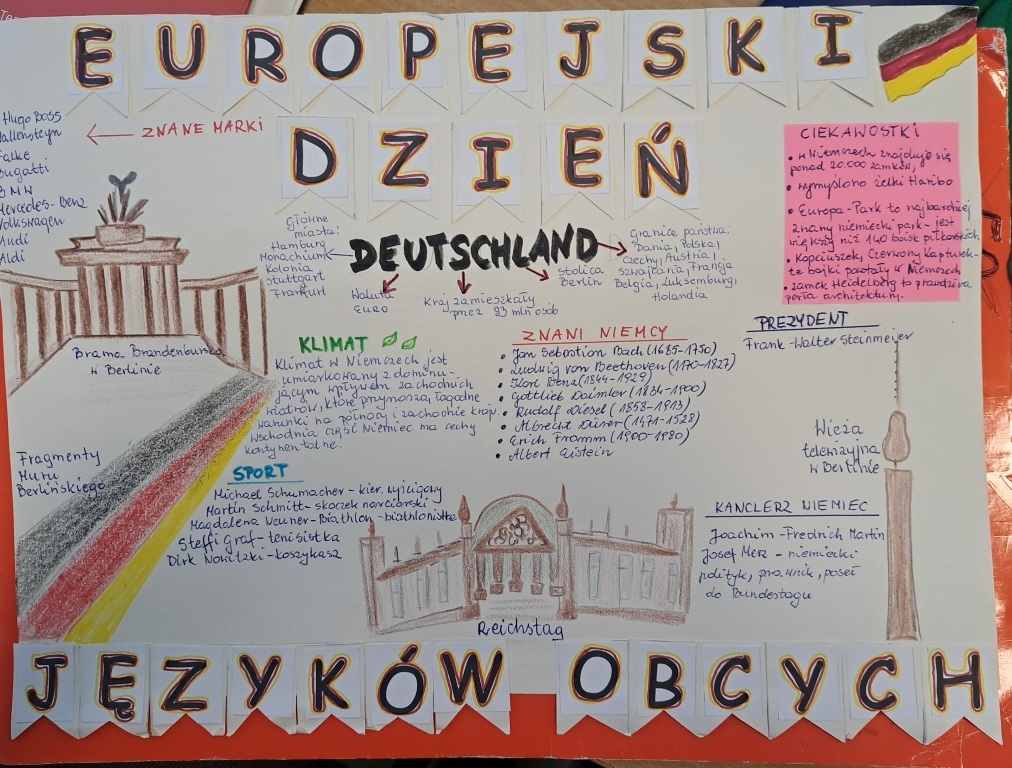 EUROPEJSKI
DZIEŃ
Hugo Boss
Wallensteyn
Falke
Bugatti
BMW
Mercedes-Benz
Volkswagen
Audi
Aldi
ZNANE MARKI
CIEKAWOSTKI
• w Niemczech znajduje się
ponad 20.000 zamków,
• wymyślono żelki Haribo
• Europa-Park to najbardziej
znany niemiecki park - jest
większy niż 140 boisk piłkarskich
• Kopciuszek, Czerwony Kapturek-
te bajki powstały w Niemczech
• zamek Heidelberg to prawdziwa
perła architektury.
Główne
miasta:
Hamburg
Monachium
Kolonia
Stuttgart
Frankfurt
DEUTSCHLAND
Waluta
EURO
Kraj zamieszkały
przez 83 mln osób
Stolica
Berlin
Granice państwa:
Dania, Polska,
Czechy, Austria,
Szwajcaria, Francja
Belgia, Luksemburg,
Holandia
Brama Brandenbursk
w Berlinie
KLIMAT
Klimat w Niemczech jest
umiarkowany z dominu-
jącym wpływem zachodnich
wiatrów, które przynoszą łagodne
warunki na północy i zachodzie kraju.
Wschodnia część Niemiec ma cechy
kontynentalne.
ZNANI NIEMCY
• Jan Sebastion Bach (1685-1750)
• Ludwig von Beethoven (1770-1827)
• Karl Benz (1844-1929)
• Gottlieb Daimler (1834-1900)
• Rudolf Diesel (1858-1913)
• Albrecht Dürer (1471-1528)
• Erich Fromm (1900-1980)
• Albert Eistein
PREZYDENT
Frank-Walter Steinmeier
Wieża
telewizyjna
w Berlinie
Fragmenty
Muru
Berlińskiego
SPORT
Michael Schumacher - kier. wyścigowy
Martin Schmitt - skoczek narciarski
Magdalena Neuner - Biathlon - biathlonistka
Steffi Graf - tenisistka
Dirk Nowitzki - koszykasz
KANCLERZ NIEMIEC
Joachim-Fredrich Martin
Josef Merz - niemiecki
polityk, prawnik, poseł
do Bundestagu
Reichstag
JĘZYKÓW OBCYCH